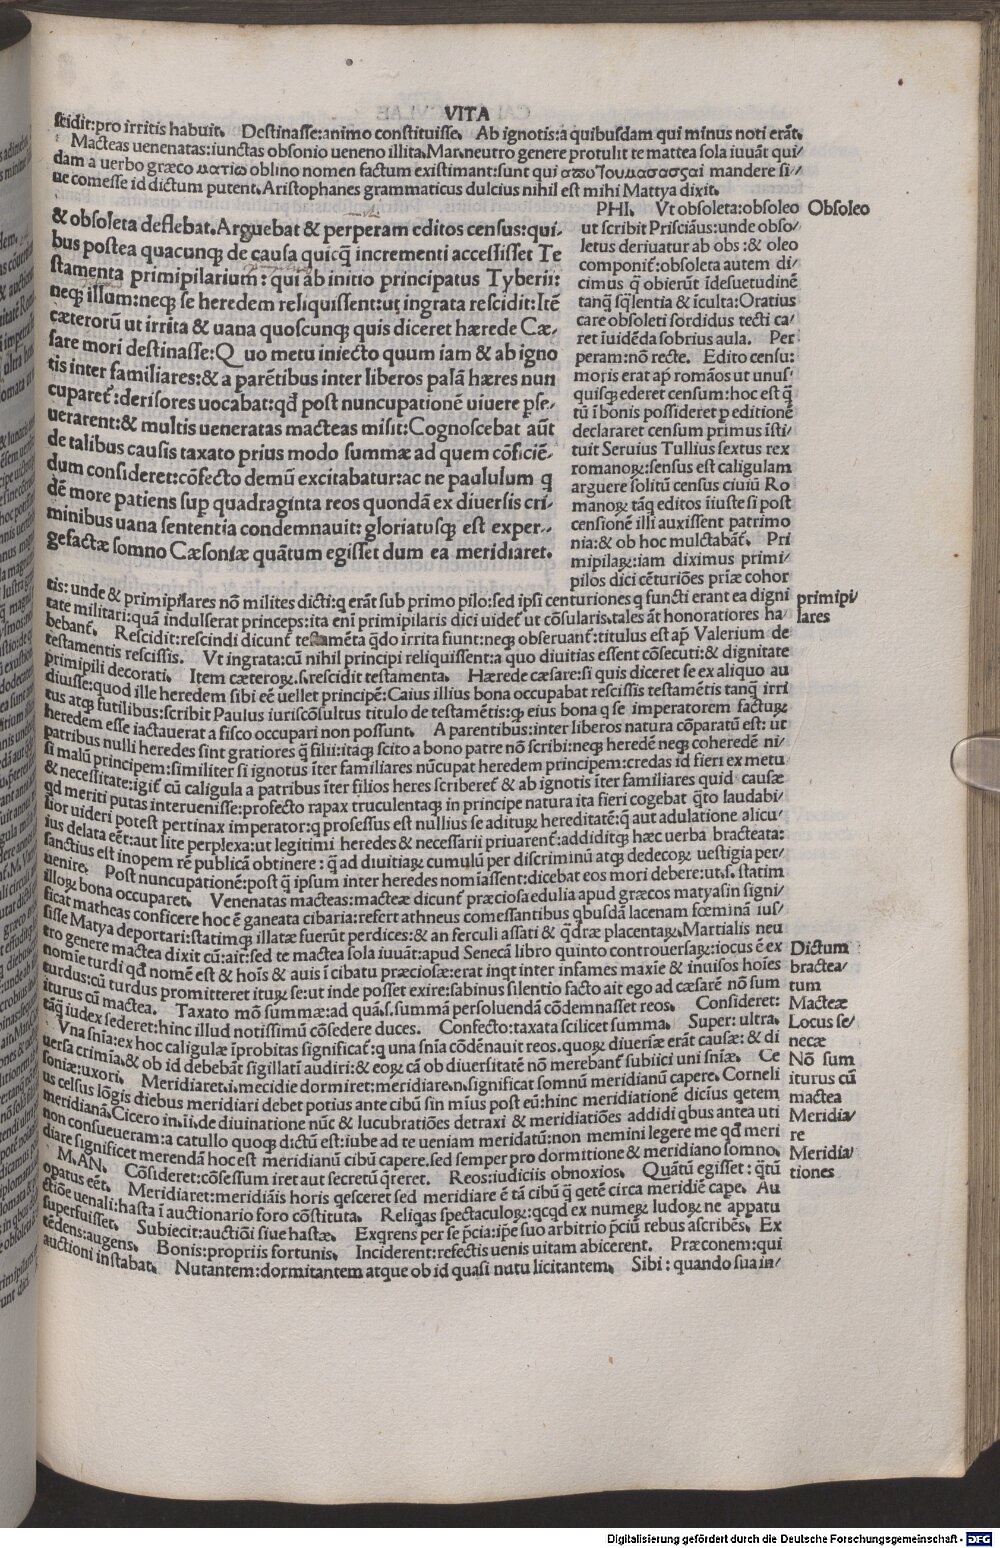 VITA
scidit:pro irritis habuit. Destinasse:animo constituisse. Ab ignotis:a quibusdam qui minus noti erãt.
Macteas uenenatas:iunctas obsonio ueneno illita.Mar.neutro genere protulit te mattea sola iuuãt qui/
dam a uerbo græco ματιω oblino nomen factum existimant:sunt qui mandere si/
ue comesse id dictum putent.Aristophanes grammaticus dulcius nihil est mihi Mattya dixit.
& obsoleta deflebat.Arguebat & perperam editos census:qui-
bus postea quacunqȝ de causa quicq̃ incrementi accessisset Te
stamenta primipilarium: qui ab initio principatus Tyberii:
neqȝ illum:neqȝ se heredem reliquissent:ut ingrata rescidit:Itẽ
cæterorũ ut irrita & uana quoscunqȝ quis diceret hærede Cæ-
sare mori destinasse:Q uo metu iniecto quum iam & ab igno
tis inter familiares:& a parẽtibus inter liberos palã hæres nun
cuparet̃:derisores uocabat:qđ post nuncupationẽ uiuere pse-
uerarent:& multis ueneratas macteas misit:Cognoscebat aũt
de talibus causis taxato prius modo summæ ad quem cõficiẽ-
dum consideret:cõfecto demũ excitabatur:ac ne paululum q
dẽ more patiens sup quadraginta reos quondã ex diuersis cri-
minibus uana sententia condemnauit: gloriatusqȝ est exper-
gefactæ somno Cæsoniæ quãtum egisset dum ea meridiaret.
PHI. Vt obsoleta:obsoleo
Obsoleo
ut scribit Prisciãus:unde obso/
letus deriuatur ab obs :& oleo
componit̃:obsoleta autem di/
cimus q̃ obierũt ĩdesuetudinẽ
tanq̃ sq̃lentia & ĩculta:Oratius
care obsoleti sordidus tecti ca/
ret iuidẽda sobrius aula. Per
peram:nõ recte. Edito censu:
moris erat ap̃ romãos ut unus/
quisqȝ ederet censum:hoc est q̃
tũ ĩ bonis possideret p editionẽ
declararet censum primus ĩsti/
tuit Seruius Tullius sextus rex
romanoꝝ:sensus est caligulam
arguere solitũ census ciuiũ Ro
manoꝝ tãq̃ editos ĩiuste si post
censionẽ illi auxissent patrimo
nia:& ob hoc mulctabãt̃. Pri
mipilaꝝ:iam diximus primi/
pilos dici cẽturiões priæ cohor
tis: unde & primipilares nõ milites dicti:q erãt sub primo pilo:sed ipsi centuriones q functi erant ea digni
primipi/
lares
tate militari:quã indulserat princeps:ita eni primipilaris dici uidet̃ ut cõsularis.tales ãt honoratiores ha/
bebant̃. Rescidit:rescindi dicunt̃ testamẽta q̃do irrita fiunt:neqȝ obseruant̃:titulus est ap̃ Valerium de
testamentis rescissis. Vt ingrata:cũ nihil principi reliquissent:a quo diuitias essent cõsecuti:& dignitate
primipili decorati. Item cæteroꝝ.s.rescidit testamenta. Hærede cæsare:si quis diceret se ex aliquo au
diuisse:quod ille heredem sibi eẽ uellet principẽ:Caius illius bona occupabat rescissis testamẽtis tanq̃ irri
tus atqȝ futilibus:scribit Paulus iuriscõsultus titulo de testamẽtis:qȝ eius bona q se imperatorem facturꝝ
heredem esse iactauerat a fisco occupari non possunt. A parentibus:inter liberos natura cõparatũ est: ut
patribus nulli heredes sint gratiores q̃ filii:itaqȝ scito a bono patre nõ scribi:neqȝ heredẽ neqȝ coheredẽ ni/
si malũ principem:similiter si ignotus ĩter familiares nũcupat heredem principem:credas id fieri ex metu
& necessitate:igit̃ cũ caligula a patribus ĩter filios heres scriberet̃ & ab ignotis ĩter familiares quid causæ
qđ meriti putas interuenisse:profecto rapax truculentaqȝ in principe natura ita fieri cogebat q̃to laudabi/
lior uideri potest pertinax imperator:q professus est nullius se aditurꝝ hereditatẽ:q̃ aut adulatione alicu/
ius delata eẽt:aut lite perplexa:ut legitimi heredes & necessarii priuarent̃:addiditqȝ hæc uerba bracteata:
sanctius est inopem rẽ publicã obtinere : q̃ ad diuitiaꝝ cumulũ per discriminũ atqȝ dedecoꝝ uestigia per/
uenire. Post nuncupationẽ:post q̃ ipsum inter heredes nomĩassent:dicebat eos mori debere:ut.s. statim
illoꝝ bona occuparet. Venenatas macteas:macteæ dicunt̃ præciosa edulia apud græcos matyasin signi/
ficat matheas conficere hoc ẽ ganeata cibaria:refert athneus comessantibus qbusdã lacenam fœminã ius/
sisse Matya deportari:statimqȝ illatæ fuerũt perdices:& an ferculi assati & q̃dræ placentaꝝ.Martialis neu
tro genere mactea dixit cũ:ait:sed te mactea sola iuuãt:apud Senecã libro quinto controuersaꝝ:iocus ẽ ex
Dictum
bractea/
tum
nomie turdi qđ nomẽ est & hoĩs & auis ĩ cibatu præciosæ:erat inqt inter infames maxĩe & inuisos hoĩes
turdus:cũ turdus promitteret iturꝝ se:ut inde posset exire:sabinus silentio facto ait ego ad cæsarẽ nõ sum
iturus cũ mactea. Taxato mõ summæ:ad quã.s.summã persoluendã cõdemnasset reos. Consideret:
Macteæ
tãq̃ iudex sederet:hinc illud notissimũ cõsedere duces. Confecto:taxata scilicet summa. Super: ultra.
Locus se/
necæ
Vna snĩa:ex hoc caligulæ ĩprobitas significat̃:q una snĩa cõdẽnauit reos.quoꝝ diuersæ erãt causæ: & di
uersa crimĩa.& ob id debebãt sigillatĩ audiri:& eoꝝ cã ob diuersitatẽ nõ merebant̃ subiici uni snĩæ. Ce
Nõ sum
iturus cũ
mactea
soniæ:uxori. Meridiaret.i.mecidie dormiret:meridiare.n.significat somnũ meridianũ capere. Corneli
us celsus lõgis diebus meridiari debet potius ante cibũ sin mĩus post eũ:hinc meridiationẽ dicĩus qetem
meridianã.Cicero in.ii.de diuinatione nũc & lucubratiões detraxi & meridiatiões addidi qbus antea uti
Meridia/
re
non consueueram:a catullo quoqȝ dictũ est:iube ad te ueniam meridatũ:non memini legere me qđ meri
diare significet merendã hoc est meridianũ cibũ capere.sed semper pro dormitione & meridiano somno.
Meridia/
tiones
M.AN. Cõsideret:cõsessum iret aut secretũ q̃reret. Reos:iudiciis obnoxios. Quãtũ egisset : q̃tũ
opatus eẽt. Meridiaret:meridiãis horis qesceret sed meridiare ẽ tã cibũ q̃ qetẽ circa meridiẽ cape. Au
ctiõe uenali:hasta ĩ auctionario foro cõstituta. Reliqas spectaculoꝝ:qcqd ex numeꝝ ludoꝝ ne appatu
superfuisset. Subiecit:auctiõi siue hastæ. Exqrens per se p̃cia:ip̃e suo arbitrio p̃ciũ rebus ascribẽs. Ex
tẽdens:augens. Bonis:propriis fortunis. Inciderent:refectis uenis uitam abicerent. Præconem:qui
auctioni instabat. Nutantem:dormitantem atque ob id quasi nutu licitantem. Sibi : quando sua in/
Digitalisierung gefördert durch die Deutsche Forschungsgemeinschaft - DFG